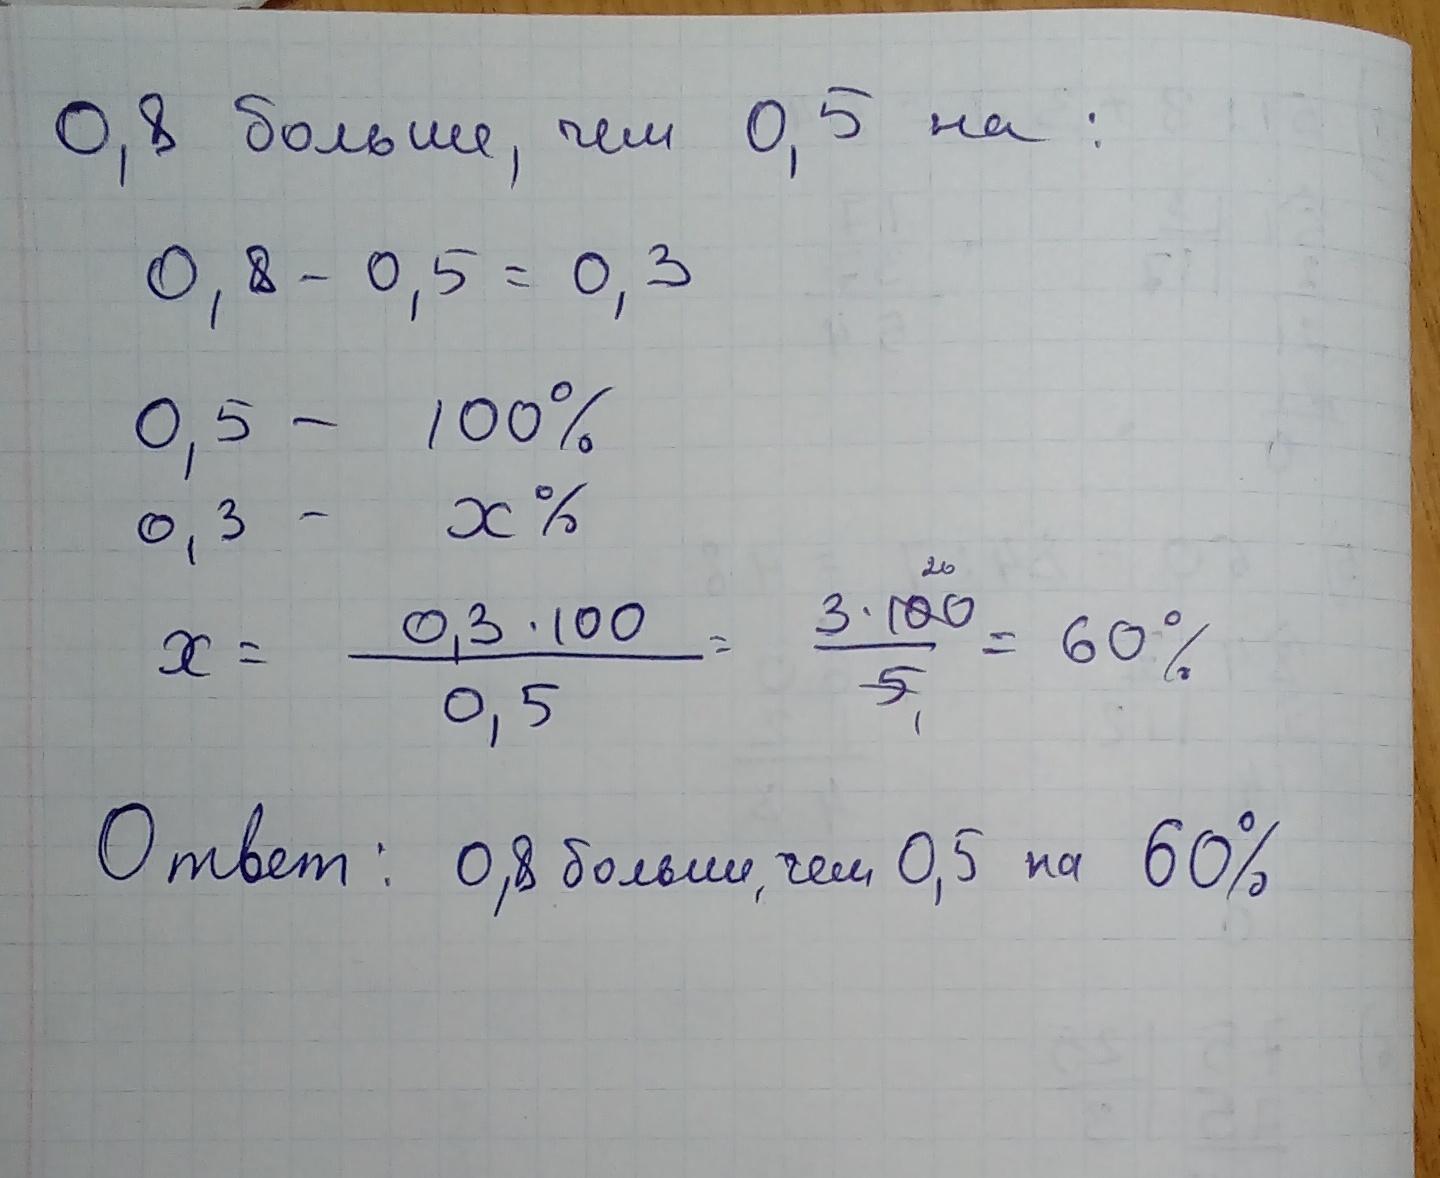 0,8 больше, чем 0,5 на:
0,8 - 0,5 = 0,3
0,5 - 100%
0,3 - x%
x = 0,3·100/0,5 = 3·100/5 = 60%
20
1
Ответ: 0,8 больше, чем 0,5 на 60%